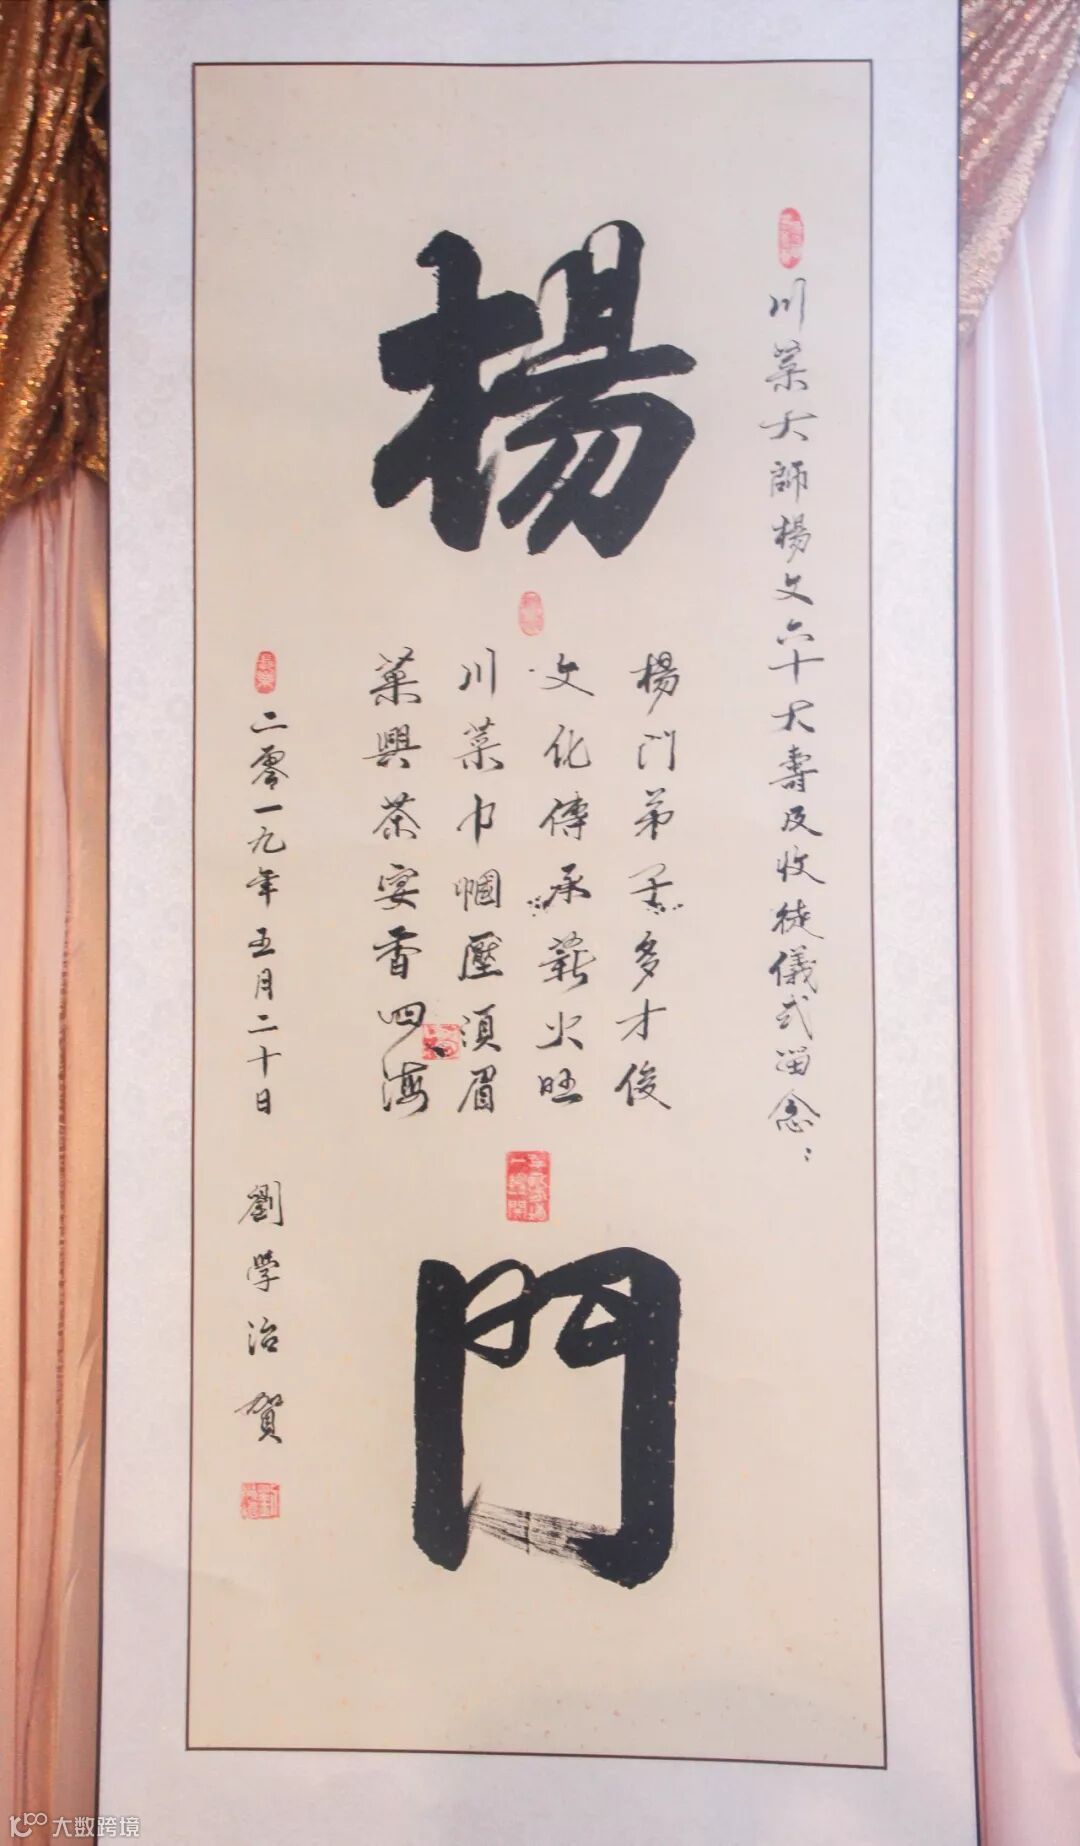 川菜大師楊文六十大壽及收徒儀式留念：
楊門
楊門弟子多才俊
文化傳承薪火旺
川菜巾幗壓須眉
菜興茶宴香四海
二零一九年五月二十日 劉学治賀
大数跨境